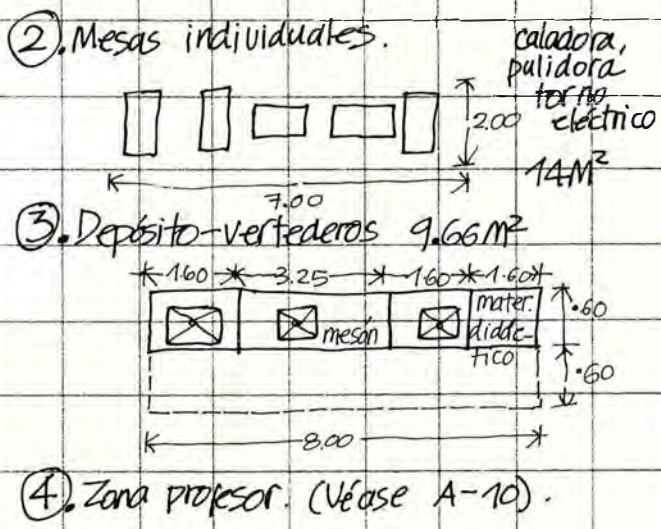 ②. Mesas individuales.
caladora,
pulidora
torno
eléctrico
2.00
14M²
7.00
③. Depósito-vertederos 9.66m²
1.60 3.25 1.60 1.60
mesón
mater.
didác-
tico
.60
.60
8.00
④. Zona profesor. (Véase A-10).